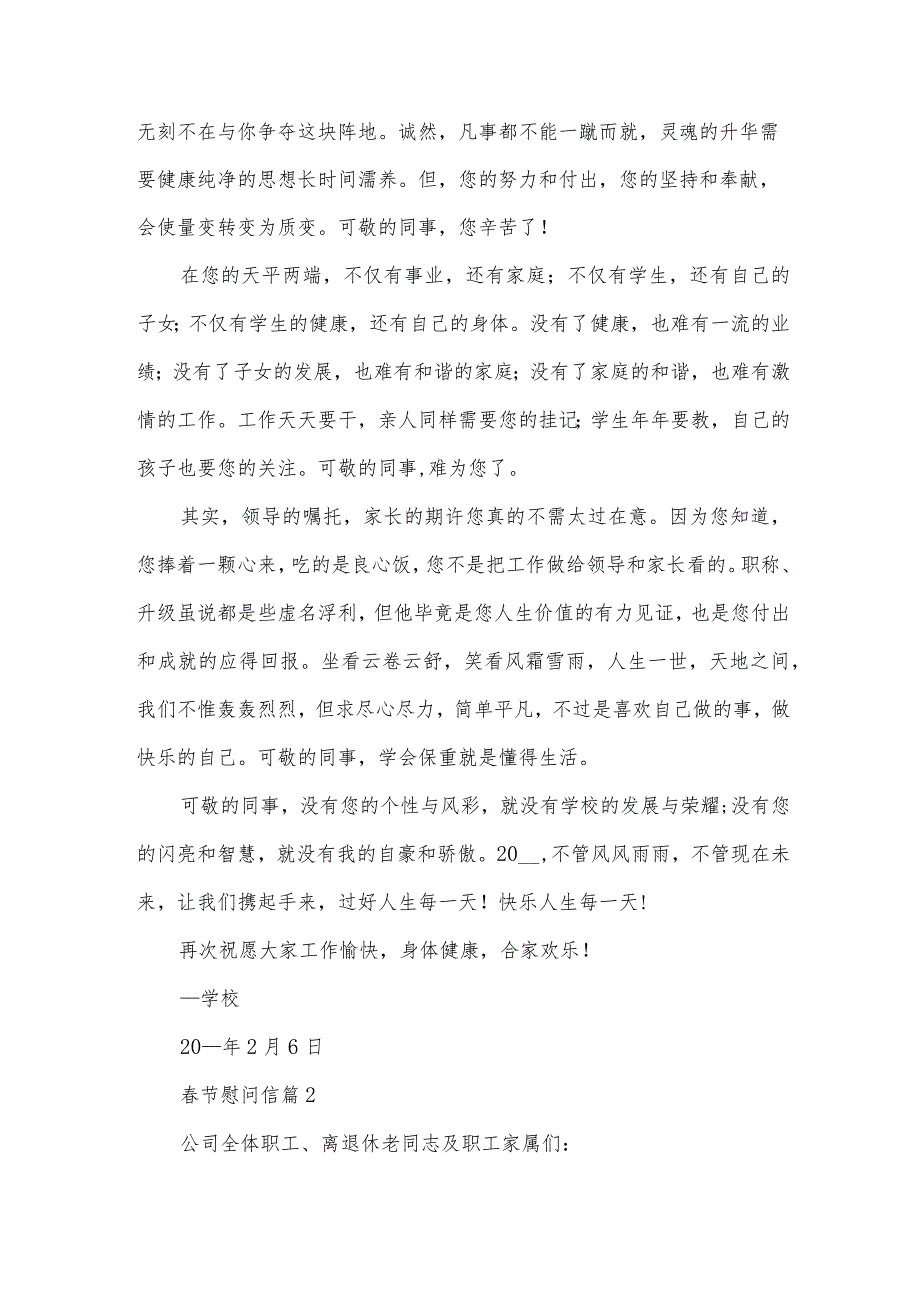 无刻不在与你争夺这块阵地。诚然，凡事都不能一蹴而就，灵魂的升华需
要健康纯净的思想长时间濡养。但，您的努力和付出，您的坚持和奉献，
会使量变转变为质变。可敬的同事，您辛苦了！
在您的天平两端，不仅有事业，还有家庭；不仅有学生，还有自己的
子女;不仅有学生的健康，还有自己的身体。没有了健康，也难有一流的业
绩；没有了子女的发展，也难有和谐的家庭；没有了家庭的和谐，也难有激
情的工作。工作天天要干，亲人同样需要您的挂记;学生年年要教，自己的
孩子也要您的关注。可敬的同事,难为您了。
其实，领导的嘱托，家长的期许您真的不需太过在意。因为您知道，
您捧着一颗心来，吃的是良心饭，您不是把工作做给领导和家长看的。职称、
升级虽说都是些虚名浮利，但他毕竟是您人生价值的有力见证，也是您付出
和成就的应得回报。坐看云卷云舒，笑看风霜雪雨，人生一世，天地之间，
我们不惟轰轰烈烈，但求尽心尽力，简单平凡，不过是喜欢自己做的事，做
快乐的自己。可敬的同事，学会保重就是懂得生活。
可敬的同事，没有您的个性与风彩，就没有学校的发展与荣耀;没有您
的闪亮和智慧，就没有我的自豪和骄傲。20__,不管风风雨雨，不管现在未
来，让我们携起手来，过好人生每一天！快乐人生每一天!
再次祝愿大家工作愉快，身体健康，合家欢乐！
—学校
20—年 2 月 6 日
春节慰问信篇 2
公司全体职工、离退休老同志及职工家属们：